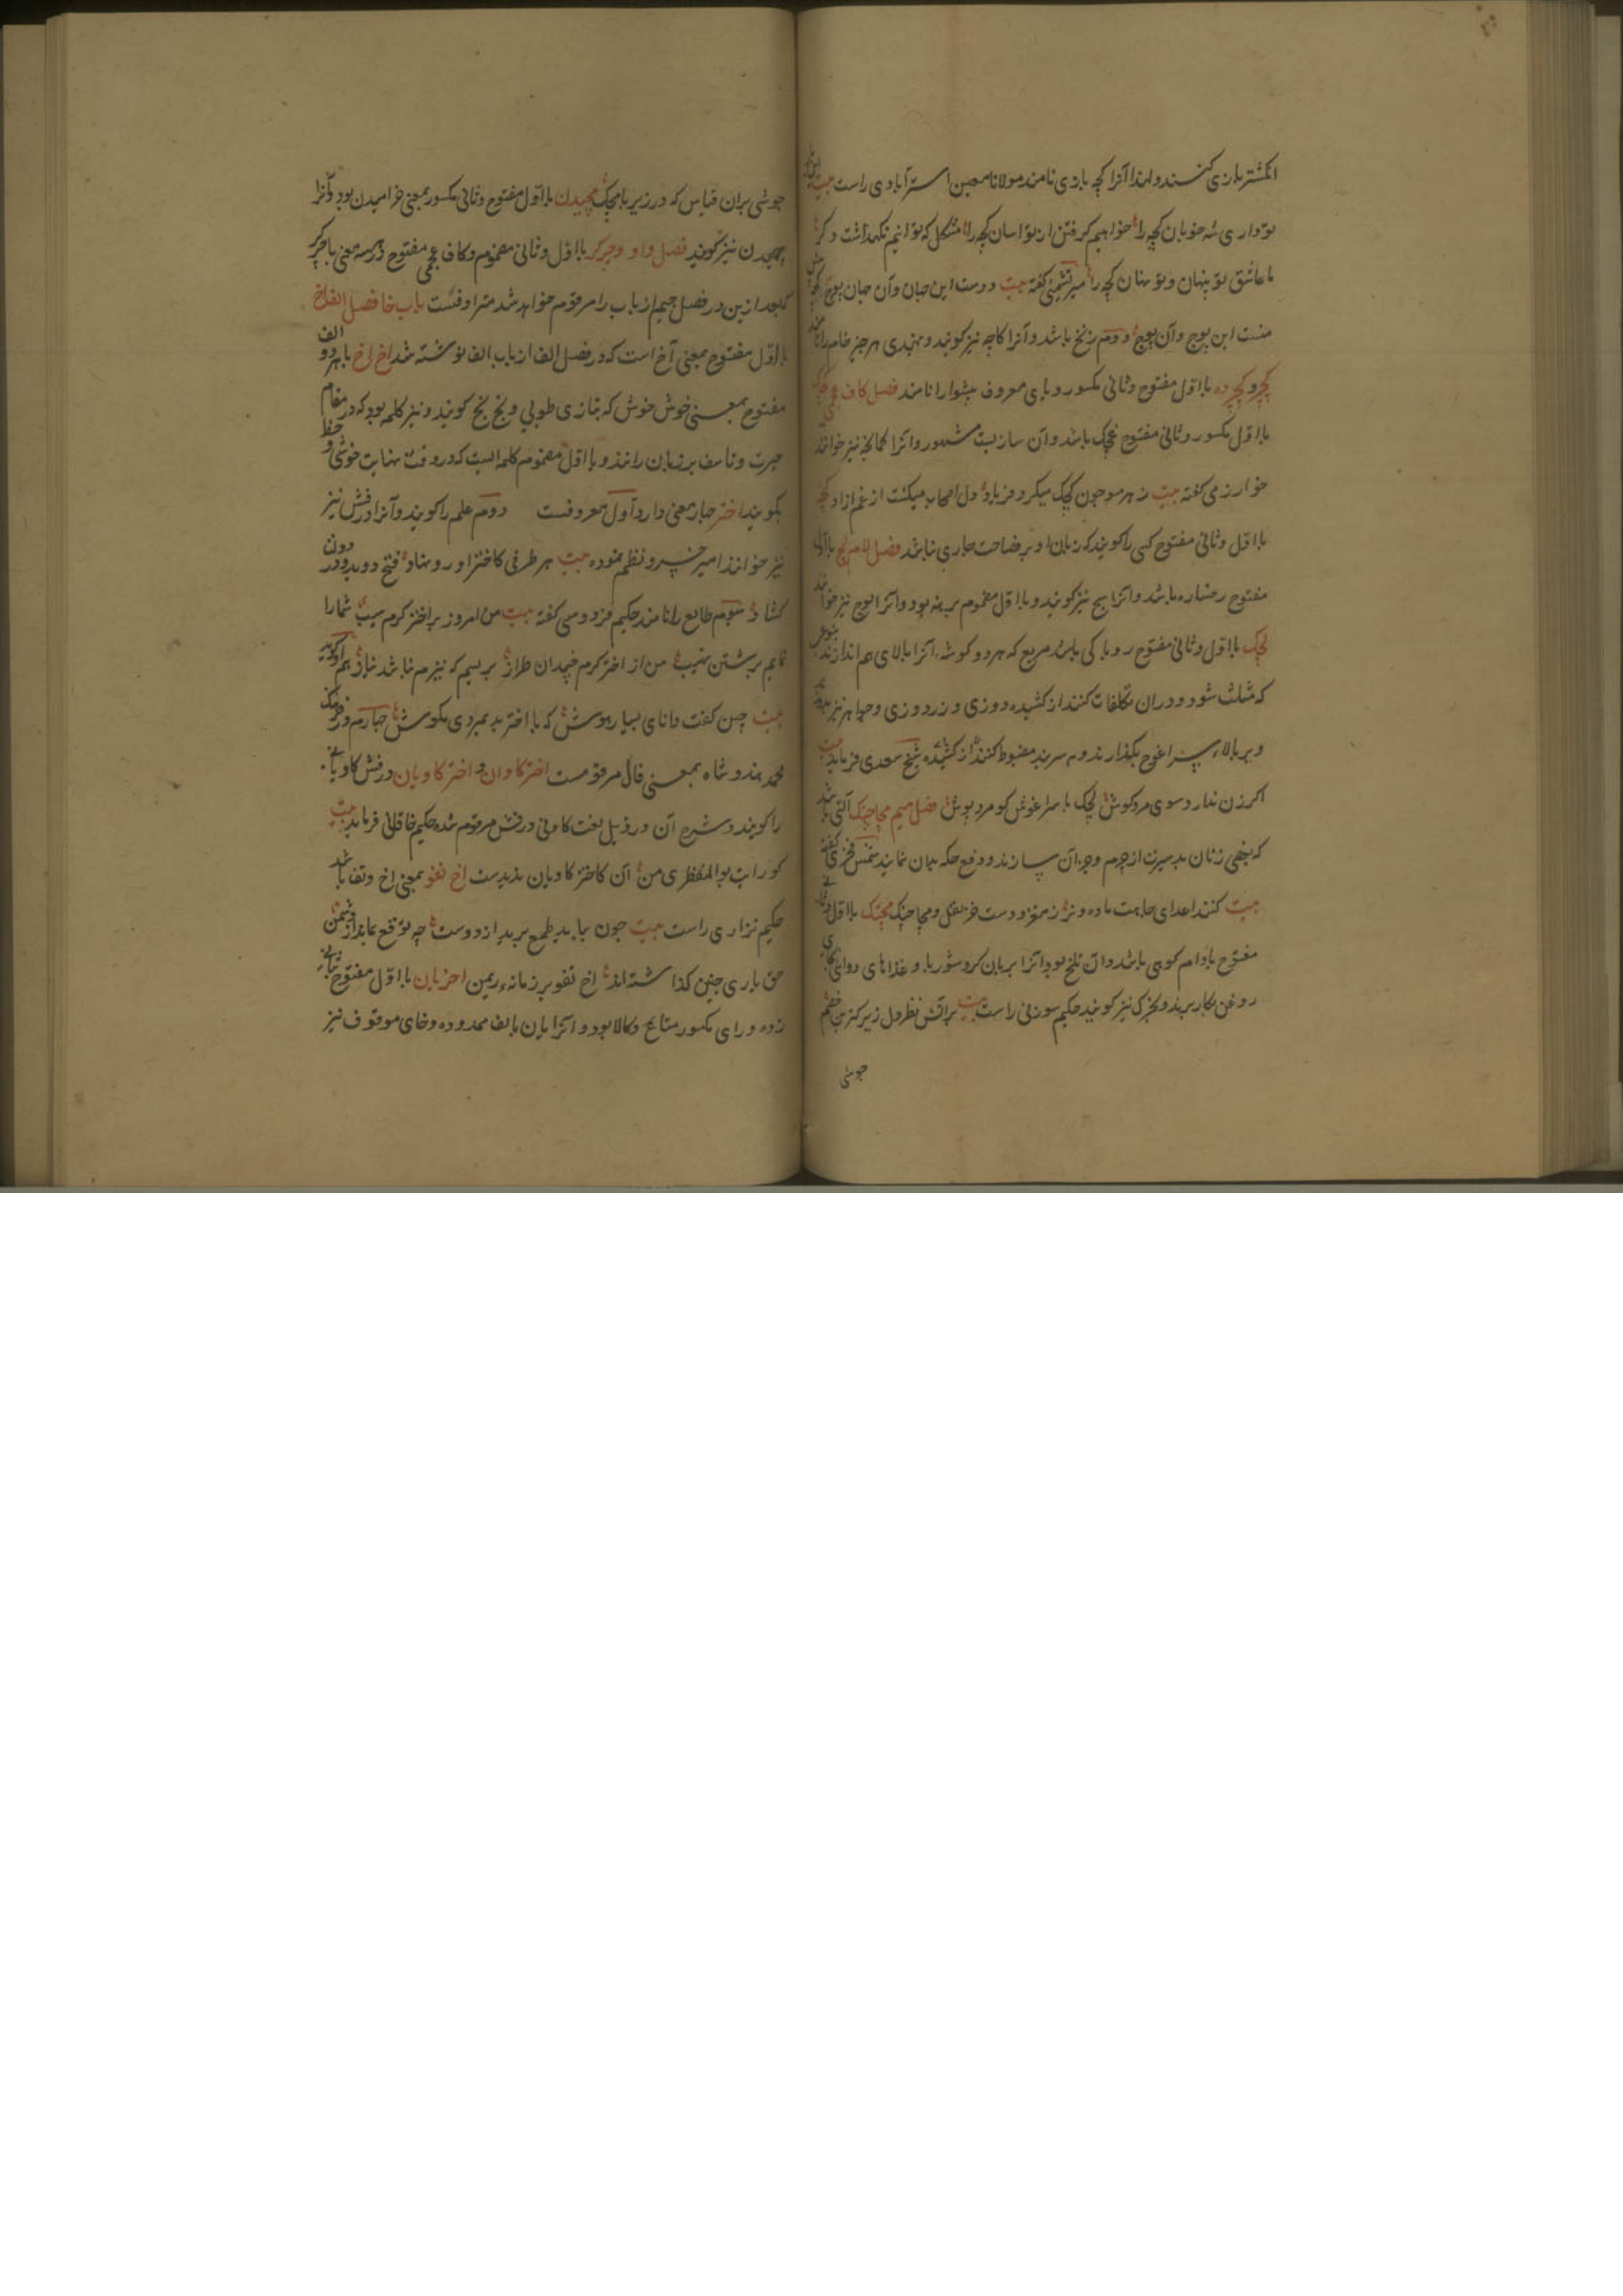 انکشتر بازی کنند و لهذا آنرا کچه بازی نامند مولانا معین استرآبادی راست بیت
تو داری شه خوبان کچه را خواهیم کرفتن از تو اسان کچه را مشکل که توانیم نکهداشت دکر
ما عاشق تو پنهان و تو پنهان کچه را میر تشبیهی کفته بیت دوست این جهان وآن جهان پوچ
منست این پوچ وآن پوچ دوم زنخ باشد وآنرا کاچه نیز کویند و بهندی هر چیز خام را نامند
با اول مفتوح وثانی مکسور و یای معروف پیشوا را نامند فصل کاف عجمی
با اول مکسور وثانی مفتوح غچک باشد وآن سازیست مشهور وآنرا کمانچه نیز خوانند
خوارزمی کفته بیت ز هر سو چون کچک میکرد فریاد دل اصحاب میکشت از غم ازاد
با اول وثانی مفتوح کسی را کویند که زبان او بر فصاحت جاری نباشد فصل لام لچ با اول
مفتوح رخساره باشد وآنرا لنج نیز کویند و با اول مضموم برهنه بود وآنرا لوچ نیز خوانند
لچک با اول وثانی مفتوح روپاکی باشد مربع که هر دو کوشه آنرا بالای هم اندازند بنوعی
که مثلث شود و دران تکلفات کنند از کشیده دوزی و زردوزی و جواهر نیز بدوزند
و بر بالاء سراغوج بکذارند و به سربند مضبوط کنند شیخ سعدی فرماید بیت
اکر زن ندارد سوی مرد کوش لچک با سراغوش کو مرد پوش فصل میم مچاچنک آلتی باشد
که بعضی زنان بدسیرت از چرم وجز آن سازند و دفع حکه بدان نمایند شمس فخری کفته
بیت کنند اعدای جاهت ماده و نر ز مغز و دست خر نفل و مچاچنک مچک با اول وثانی
مفتوح بادام کوهی باشد وآن تلخ بود آنرا بریان کرده شوربا و غذاهای دوایی
روغن بکار برند و بخرک نیز کویند حکیم سوزنی راست بیت
جوشی
جوشی بران قیاس که در زیر با مچک مچیدن با اول مفتوح وثانی مکسور بمعنی خرامیدن بود وآنرا
چمیدن نیز کویند فصل واو وچرکر با اول وثانی مضموم وکاف عجمی مفتوح
که بعد ازین در فصل جیم از باب را مرقوم خواهد شد مترادفست باب خا فصل الف اخ
با اول مفتوح بمعنی آخ است که در فصل الف از باب الف نوشته شد اخ اخ با هر دو الف
مفتوح بمعنی خوش خوش که بتازی طوبی و بخ بخ کویند و نیز کلمه بود که در مقام
حیرت و تاسف بر زبان رانند و با اول مضموم کلمه ایست که در وقت نهایت خوشی و حظ
بکویند اختر چهار معنی دارد اول معروفست دوم علم را کویند وآنرا درفش نیز
نیز خوانند امیر خسرو نظم نموده بیت هر طرفی کاختر او رو نهاد فتح دوید و در دولت
کشاد سوم طالع را نامند حکیم فردوسی کفته بیت من امروز بر اختر کرم سیب شما را
نمایم برشتن نهیب من از اختر کرم چندان طراز بریسم که نیزم نباشد نیاز هم او کوید
بیت چنین کفت دانای بسیار هوش که با اختر بد بمردی مکوش چهارم در فرهنک
محمد هندوشاه بمعنی فال مرقومست اختر کاوان و اختر کاویان درفش کاویانی
را کویند و شرح آن در ذیل لغت کاویانی درفش مرقوم شده حکیم خاقانی فرماید بیت
کو رایت بوالمظفری من آن کاختر کاویان ندیدست اخ تفو بمعنی اخ و تف باشد
حکیم نزاری راست بیت چون بباید طمع برید از دوست چه توقع نماید از دشمن
حق یاری چنین کذاشته اند اخ تفو بر زمانه ریمن اخریان با اول مفتوح بثانی
زده و رای مکسور متاع و کالا بود و آنرا یان بالف ممدوده و خای موقوف نیز